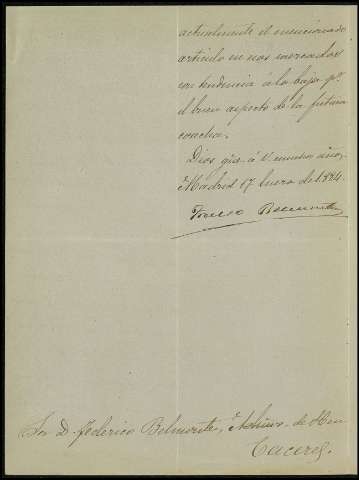 actualmente el mencionado
articulo en nos mercados
con tendencia á la baja pr.
el buen aspecto de la futura
cosecha.
Dios gde. á V. muchos años,
Madrid 17 Enero de 1884.
Sor D. Federico Belmonte, Admor. de
Caceres.